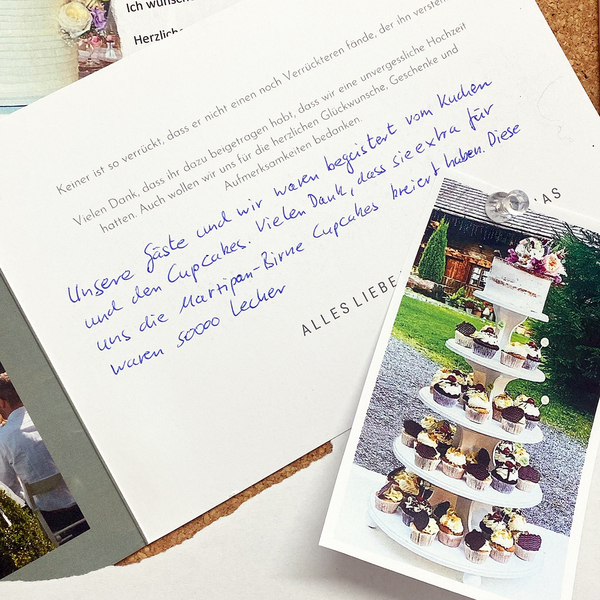 Ich wünsch
Herzliche
Keiner ist so verrückt, dass er nicht einen noch Verrückteren fände, der ihn versteh
Vielen Dank, dass ihr dazu beigetragen habt, dass wir eine unvergessliche Hochzeit
hatten. Auch wollen wir uns für die herzlichen Glückwünsche, Geschenke und
Aufmerksamkeiten bedanken.
Unsere Gäste und wir waren begeistert vom Kuchen
und den Cupcakes. Vielen Dank, dass sie extra für
uns die Martipan-Birne Cupcakes kreiert haben. Diese
waren soooo lecker
ALLES LIEBE
AS